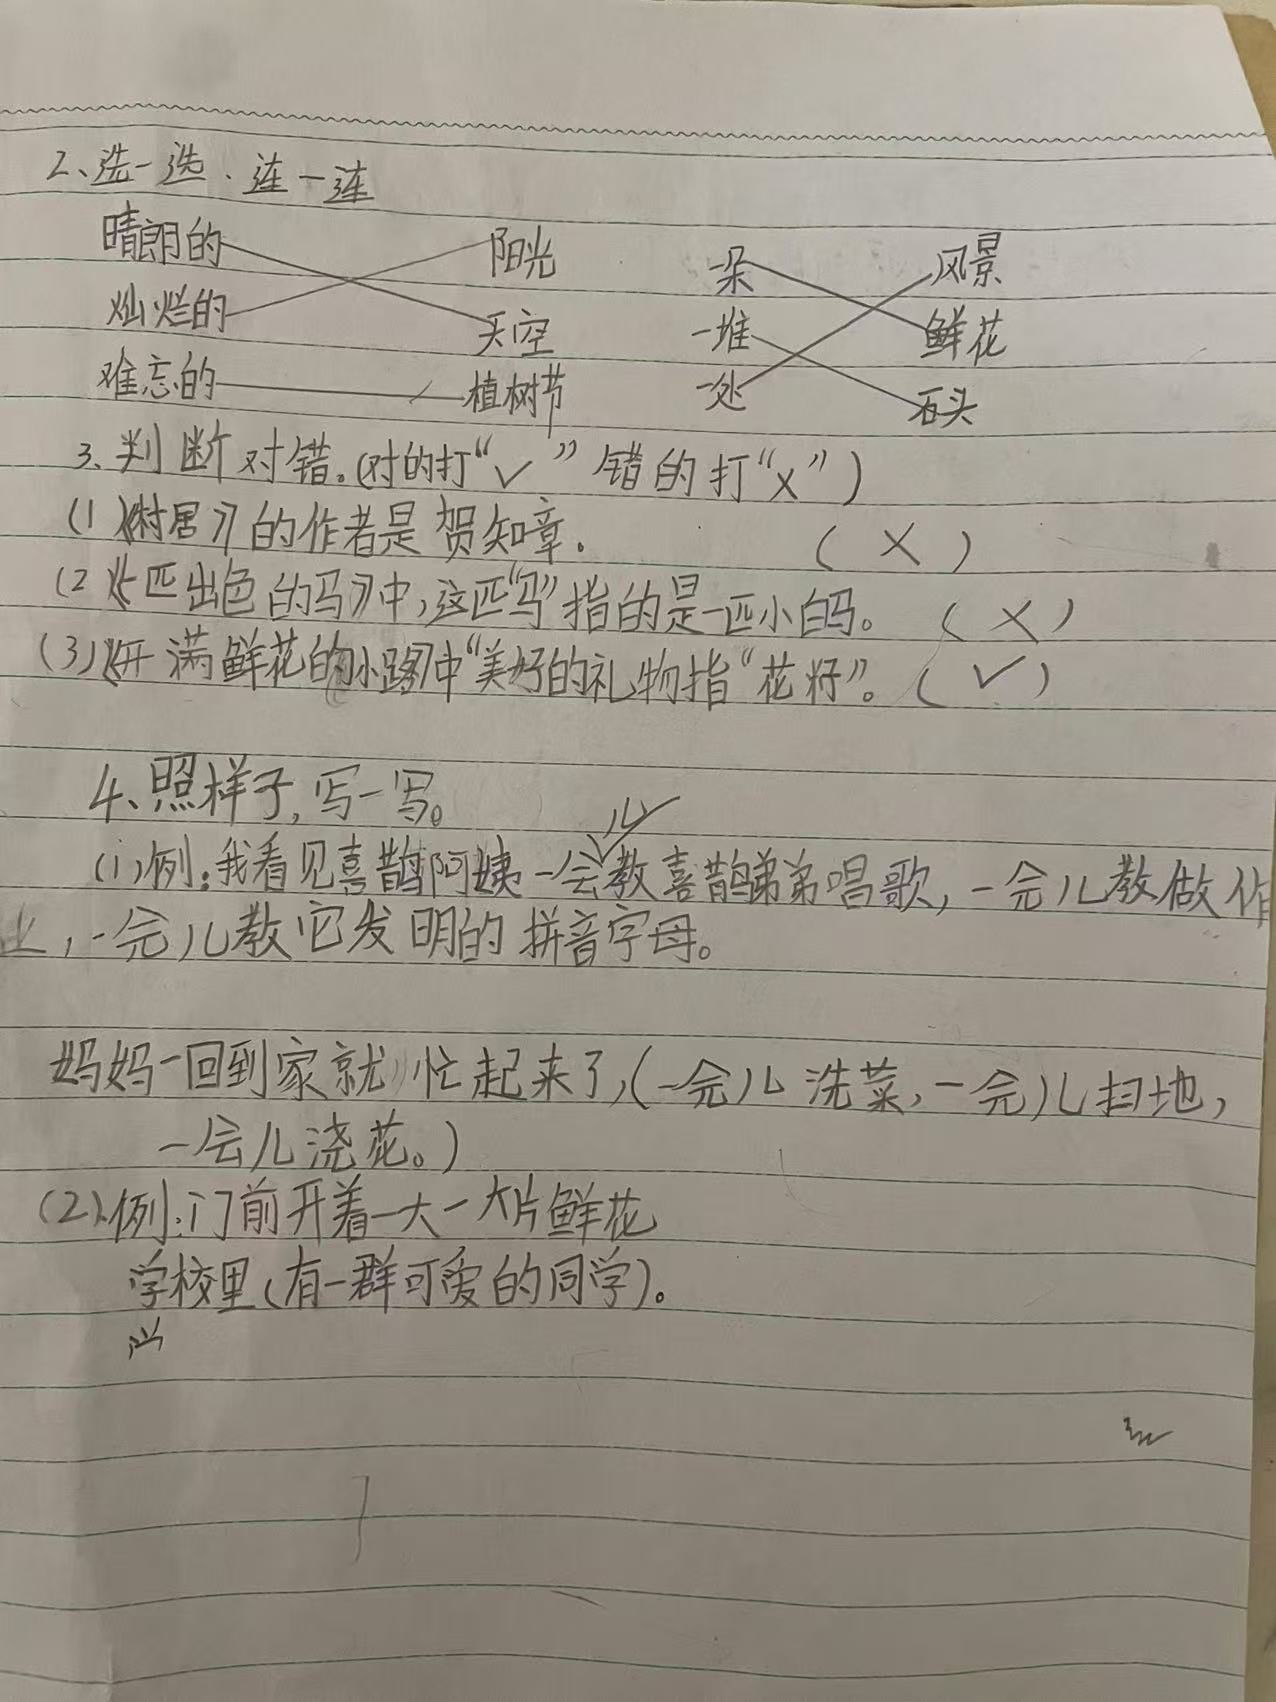 2、选一选.连一连
晴朗的 阳光 一朵 风景
灿烂的 天空 一堆 鲜花
难忘的 植树节 一处 石头
3、判断对错。(对的打“✓”错的打“X”)
(1)《村居》的作者是贺知章. (X)
(2)《一匹出色的马》中,这匹“马”指的是一匹小白马。(X)
(3)《开满鲜花的小路》中“美好的礼物指“花籽”。(✓)
4、照样子,写一写。
(1)例:我看见喜鹊阿姨一会儿教喜鹊弟弟唱歌,一会儿教做作
业,一会儿教它发明的拼音字母。
妈妈一回到家就忙起来了,(一会儿洗菜,一会儿扫地,
一会儿浇花。)
(2)例:门前开着一大一大片鲜花
学校里(有一群可爱的同学)。